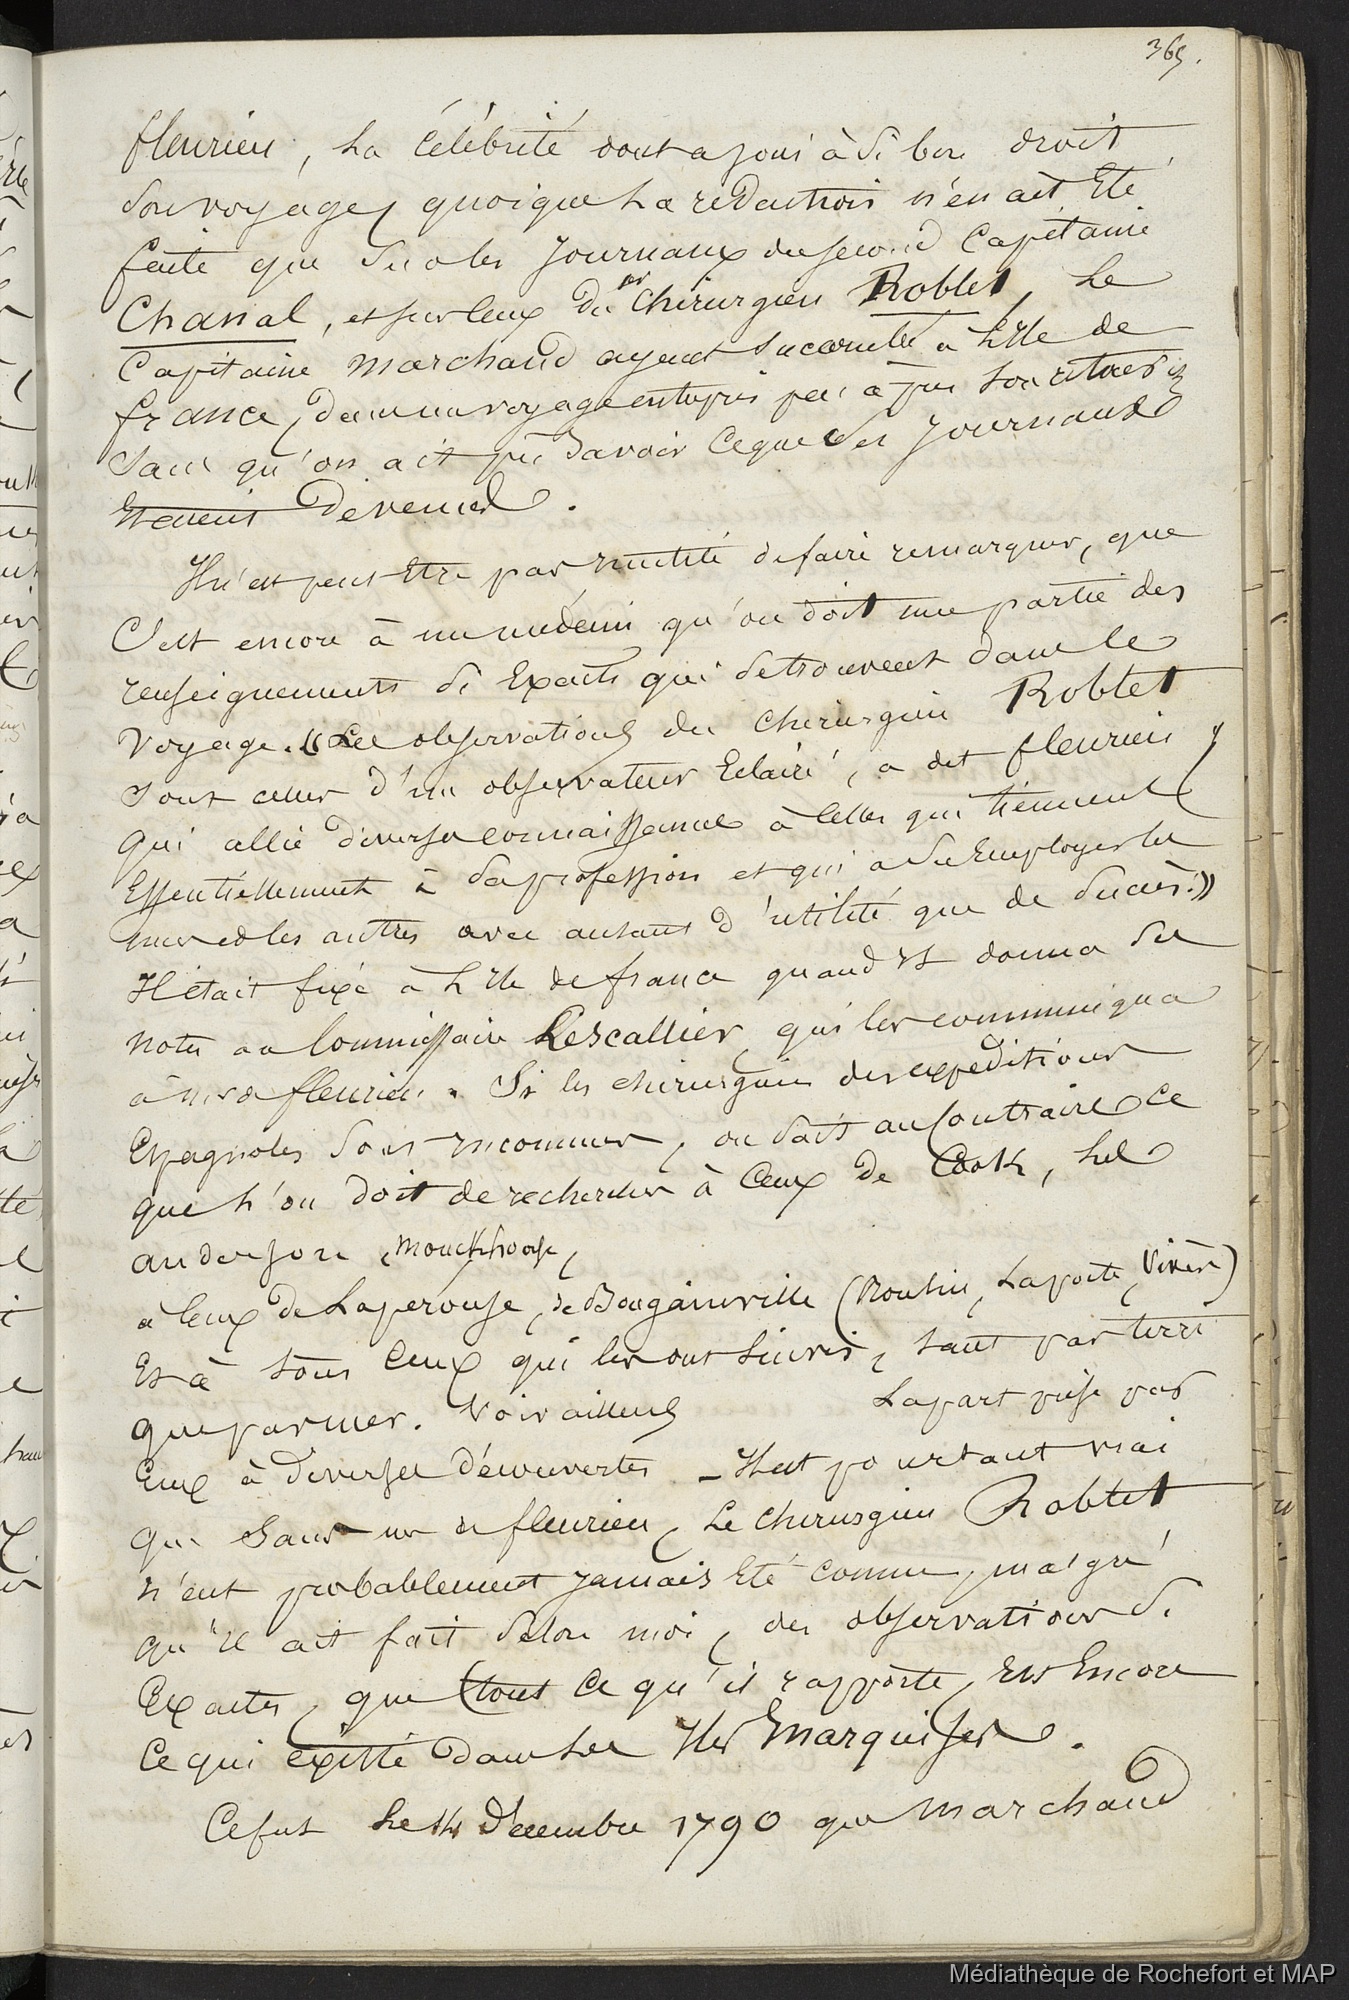 365.
fleurieu, la célébrité dont a joui à si bon droit
son voyage, quoique la rédaction n'en ait été
faite que sur les journaux du second capitaine
Chanal, et sur ceux du chirurgien Roblet, le
Capitaine marchand ayant succombé à l'Ile de
france, dans un voyage entrepris peu après son retour
sans qu'on ait pu savoir ce que ses journaux
étaient devenus.
Il n'est peut être pas inutile de faire remarquer, que
C'est encore à un médecin qu'on doit une partie des
renseignements si exacts qui se trouvent dans le
voyage. « Les observations du chirurgien Roblet
sont celles d'un observateur éclairé, a dit fleurieu,
qui allie diverses connaissances à celles qui tiennent
Essentiellement à sa profession et qui a su employer les
unes et les autres avec autant d'utilité que de succès. »
Il était fixé à l'Ile de france quand il donna ses
notes au Commissaire Lescallier, qui les communiqua
à mr de fleurieu. Si les chirurgiens des expéditions
Espagnoles sont inconnus, on sait au contraire ce
que l'on doit de recherches à ceux de Cook,
anderson, Monckhouse,
à ceux de Laperouse, de Bougainville (Laporte, Vivès)
Et à tous ceux qui les ont suivis, tant par terre
que par mer. Voir ailleurs La part prise par
Eux à diverses découvertes - Il est pourtant vrai
que sans mr de fleurieu, le chirurgien Roblet
n'eut probablement jamais été connu, malgré
qu'il ait fait selon moi, des observations si
Exactes, que tout ce qu'il rapporte, est encore
ce qui existe dans les Iles Marquises.
Ce fut le 14 décembre 1790 que marchand
Médiathèque de Rochefort et MAP